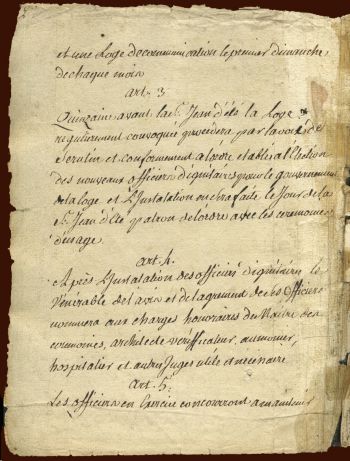 et une Loge de communication le premier dimanche
de chaque mois
art. 3
Quinzaine avant la St. Jean d'été la Loge
regulierement convoquée procedera par la voix de
Scrutin et conformement a l'ordre etabli a l'Election
des nouveaux officiers dignitaires pour le gouvernement
de la loge et L'Instalation en sera faite le Jour de la
St. Jean d'Eté patron de l'ordre avec les ceremonies
d'usage.
art. 4.
Après L'Instalation des officiers dignitaires le
Venerable de l'avis et de l'agrement de ses officiers
nommera aux charges honoraires du Maitre des
ceremonies, architecte verifficateur, aumonier,
hospitalier et autres Juges utile et necessaire
Art. 5.
Les officiers en Exercice concourront a maintenir